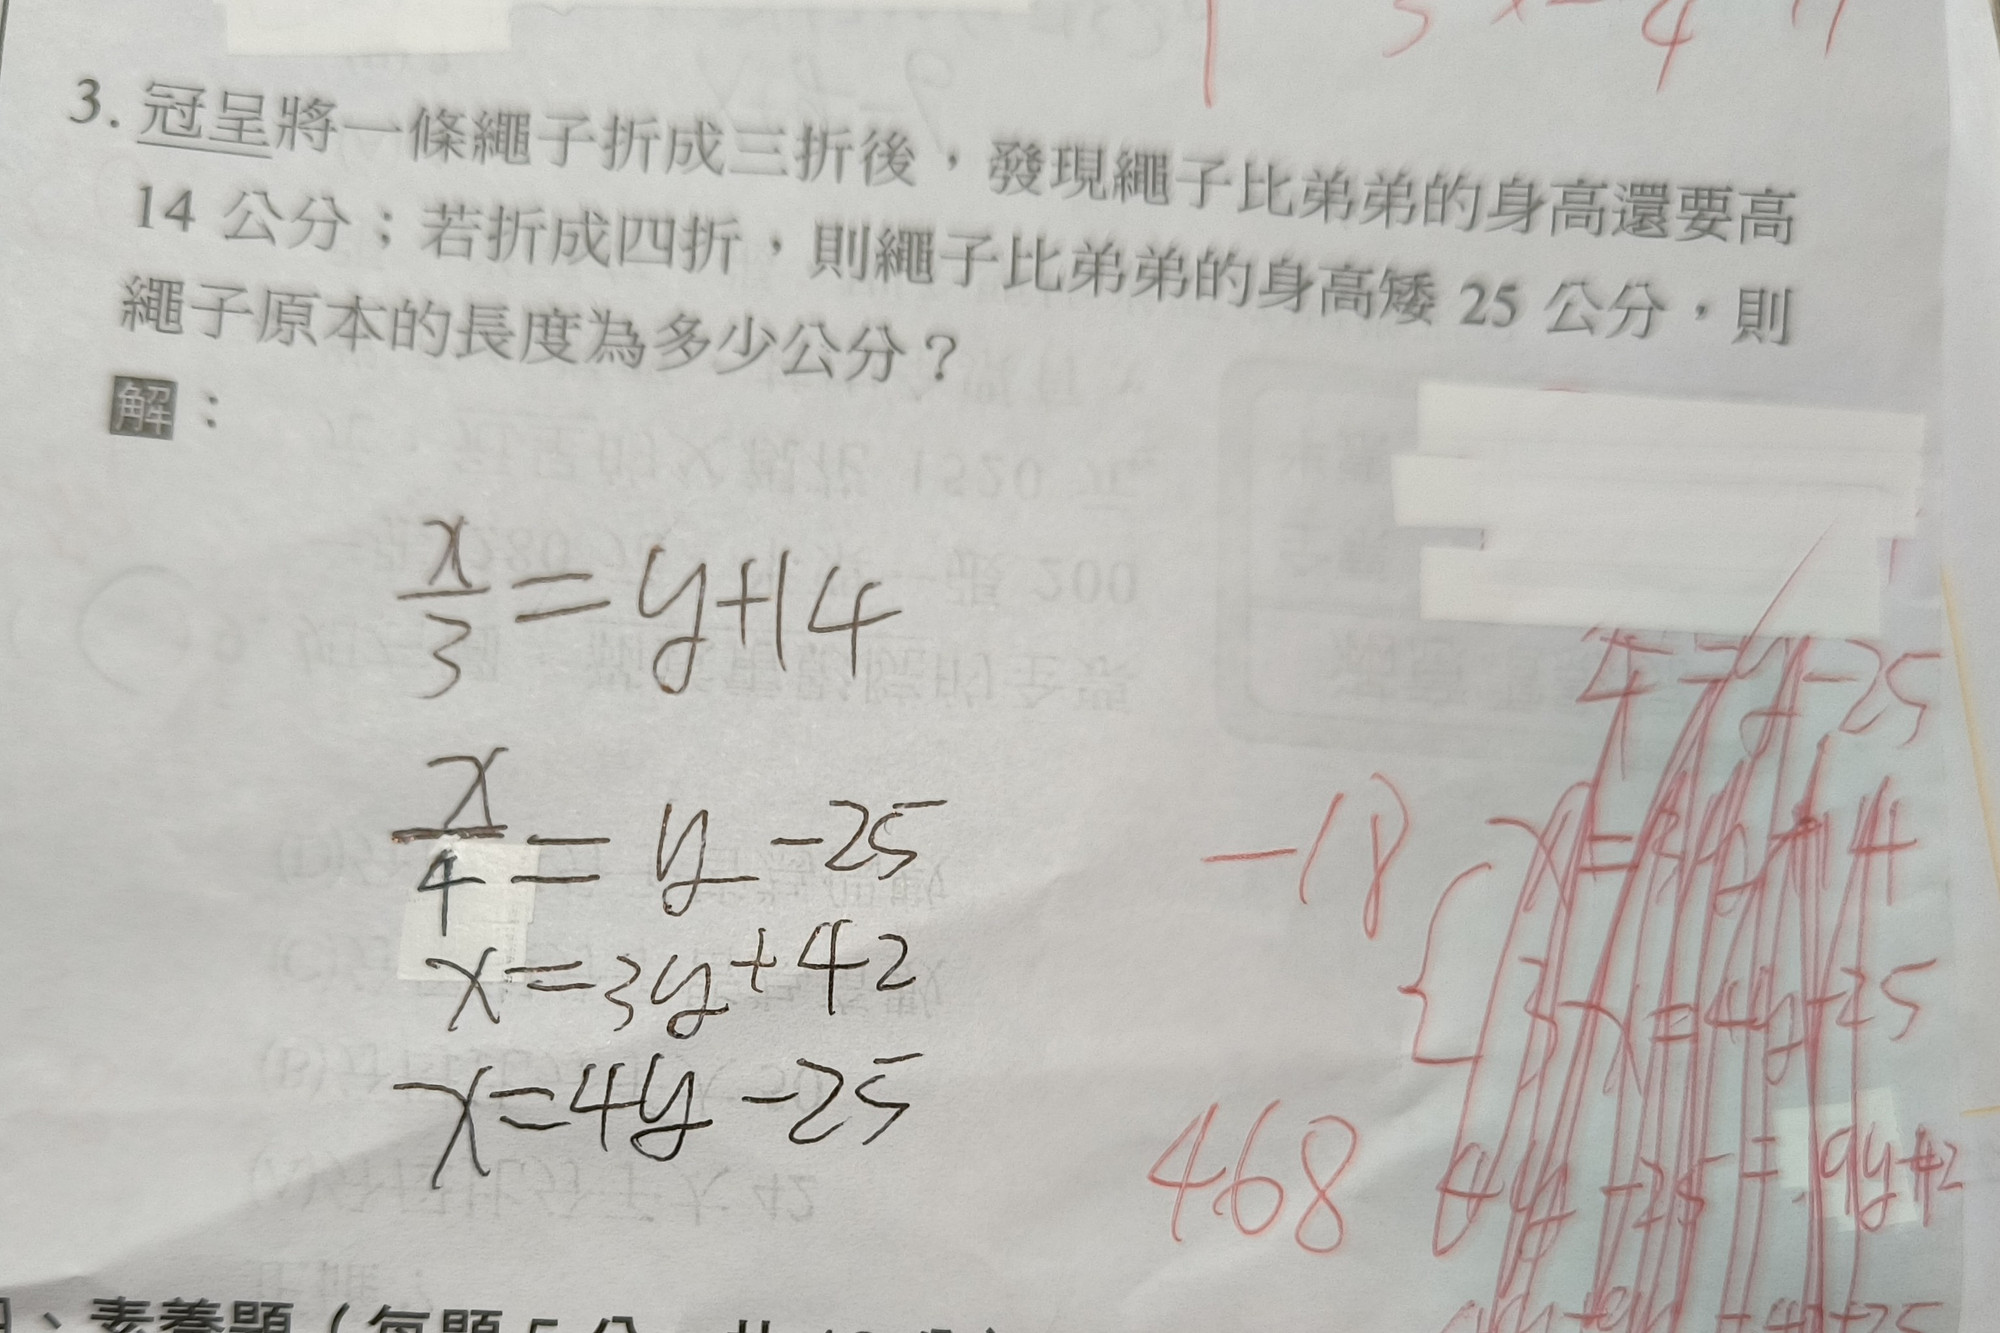 3. 冠呈將一條繩子折成三折後，發現繩子比弟弟的身高還要高
14 公分；若折成四折，則繩子比弟弟的身高矮 25 公分，則
繩子原本的長度為多少公分？
解：
x/3 = y+14
x/4 = y-25
x=3y+42
x=4y-25
-18
468
4=y-25
x=3y+14
3x=4y-25
4y-25=9y+42
素養題（每題 5 分